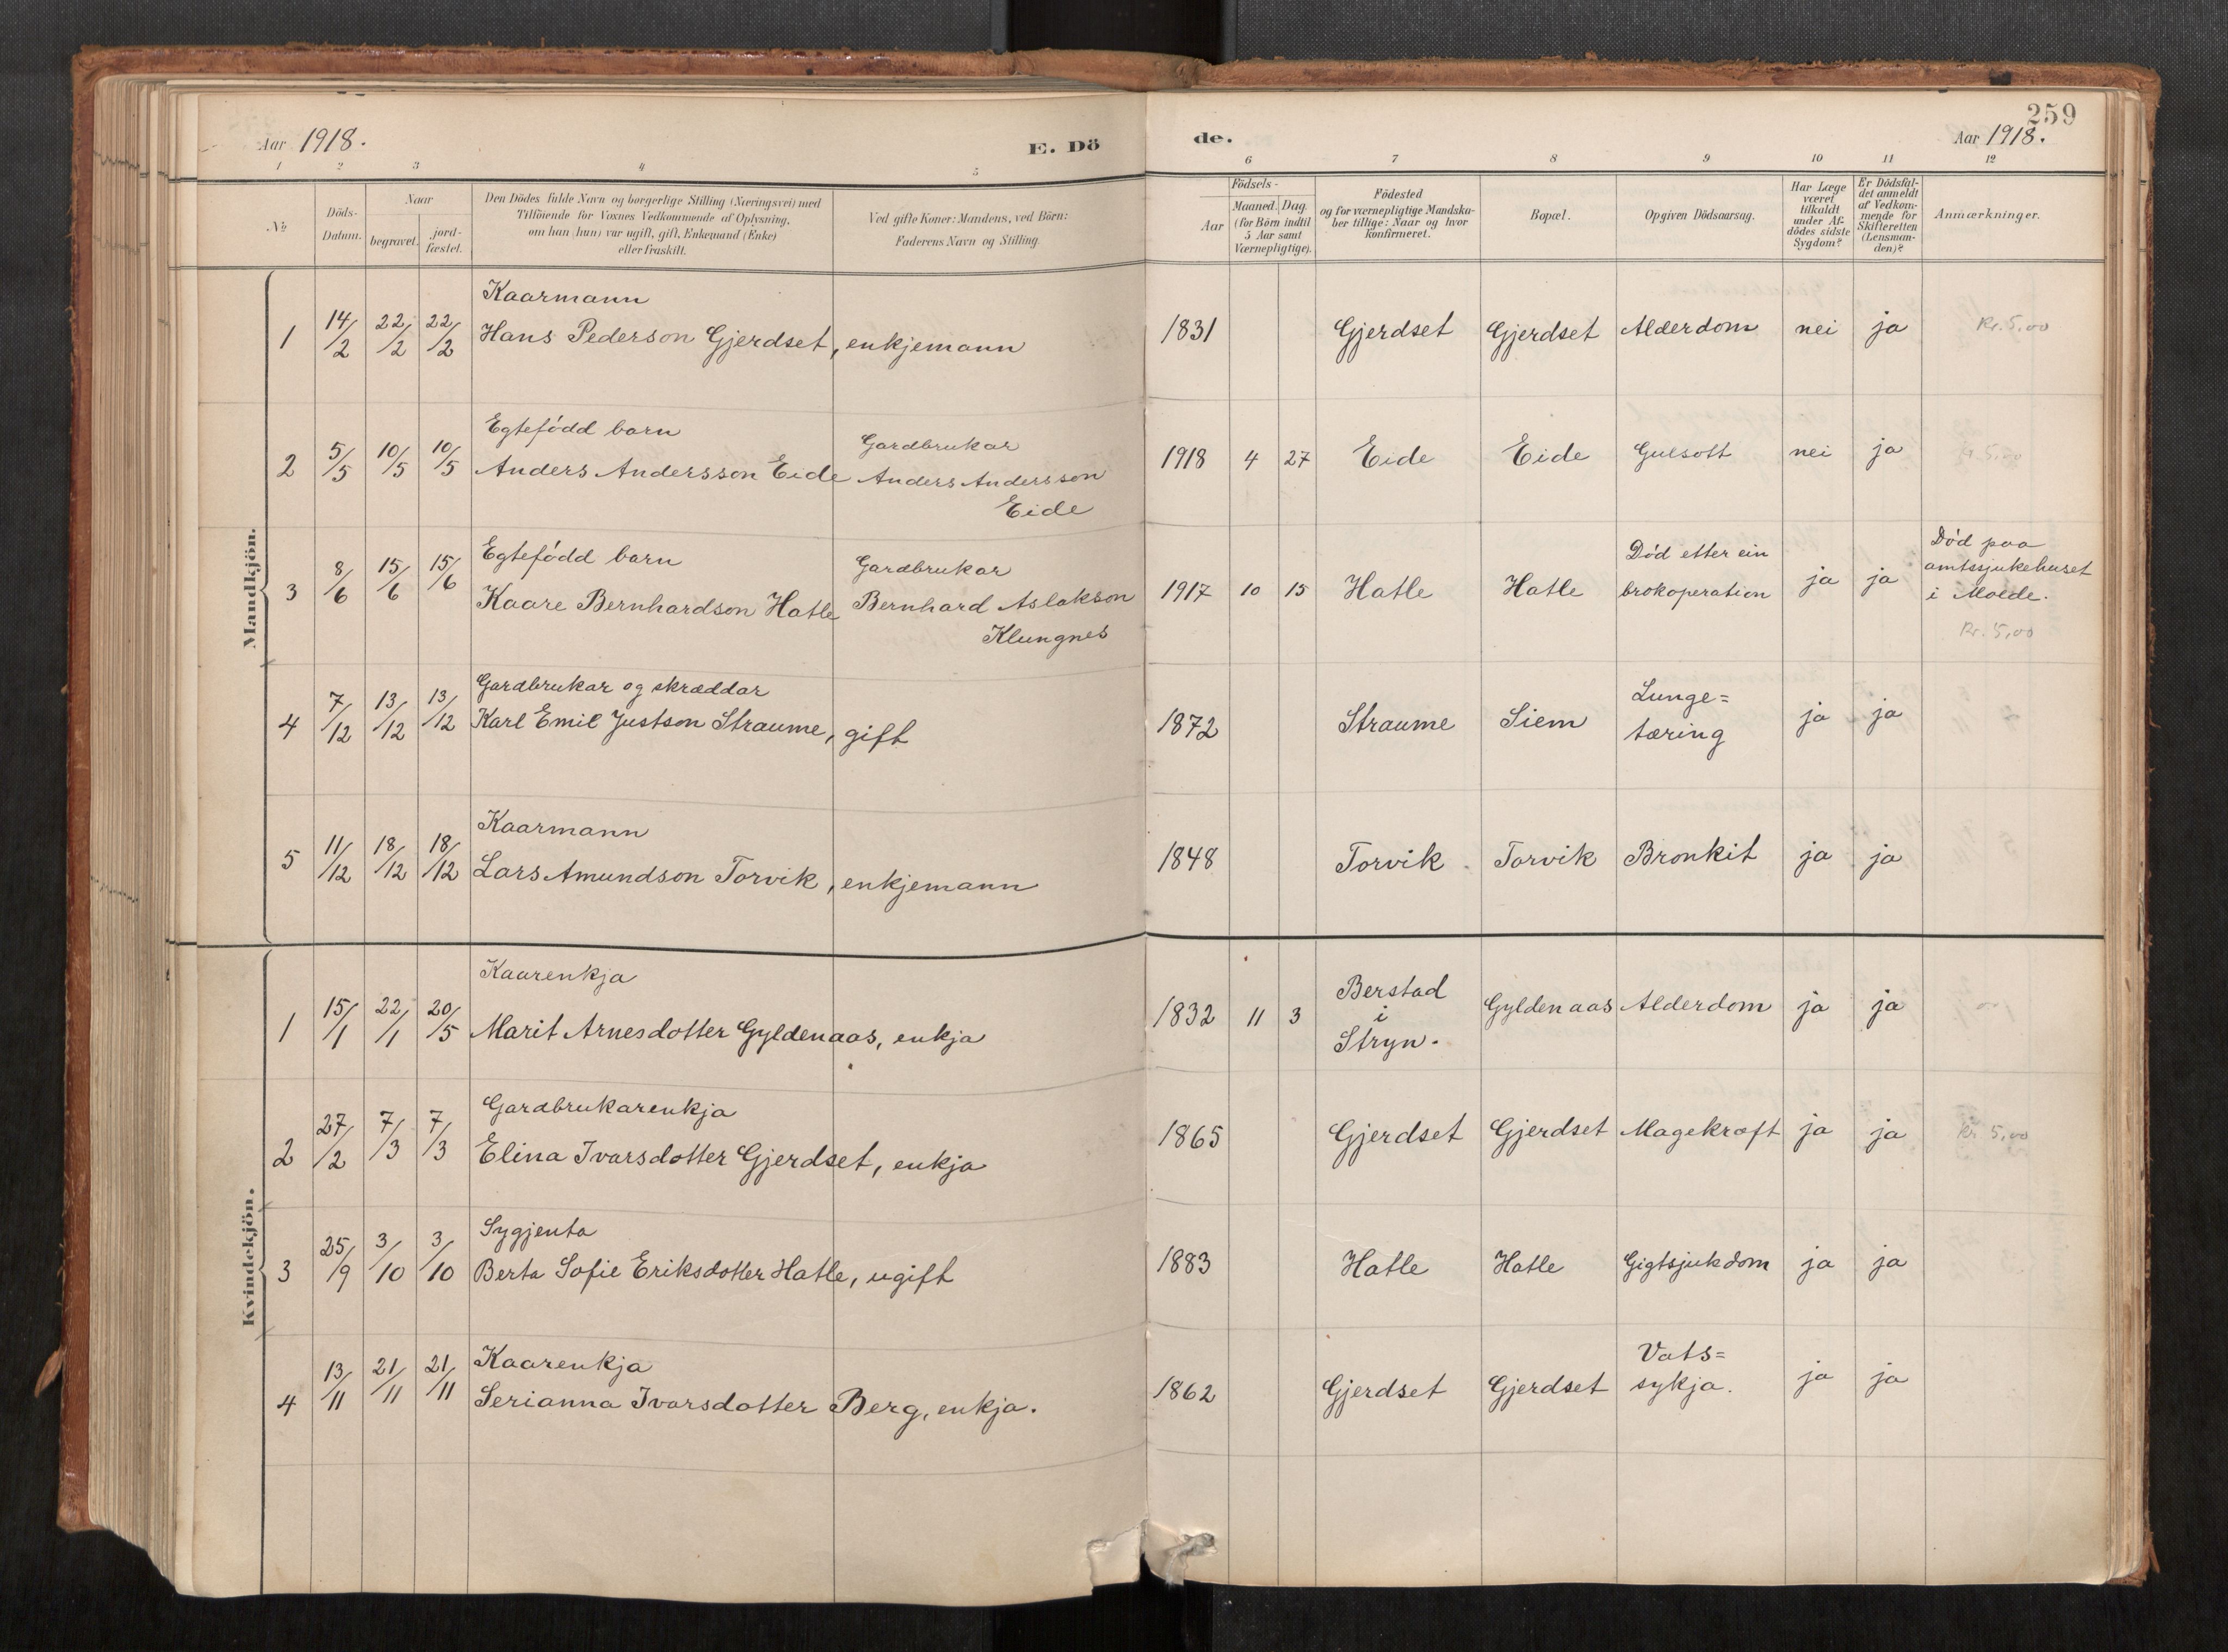 259
Aar 1918.
E. Dö
de.
Aar 1918.
1 2 3 4 5 6 7 8 9 10 11 12
№
Döds-
Datum.
Naar
begravet.
jord-
fæstet.
Den Dödes fulde Navn og borgerlige Stilling (Næringsvei) med
Tilföiende for Voxnes Vedkommende af Oplysning,
om han (hun) var ugift, gift, Enkemand (Enke)
eller fraskilt.
Ved gifte Koner: Mandens, ved Börn:
Faderens Navn og Stilling.
Födsels-
Aar
Maaned. Dag.
(for Börn indtil
5 Aar samt
Værnepligtige).
Födested
og for værnepligtige Mandska-
ber tillige: Naar og hvor
konfirmeret.
Bopæl.
Opgiven Dödsaarsag.
Har Læge
været
tilkaldt
under Af-
dödes sidste
Sygdom?
Er Dödsfal-
det anmeldt
af Vedkom-
mende for
Skifteretten
(Lensman-
den)?
Anmærkninger.
Mandkjön.
Kaarmann
1 14/2 22/2 22/2 Hans Pederson Gjerdset, enkjemann 1831 Gjerdset Gjerdset Alderdom nei ja Kr. 5,00
Egtefødd barn
Gardbrukar
2 5/5 10/5 10/5 Anders Andersson Eide Anders Andersson 1918 4 27 Eide Eide Gulsott nei ja Kr. 5,00
Eide
Egtefødd barn
Gardbrukar
Død etter ein
Død paa
amtssjukehuset
3 8/6 15/6 15/6 Kaare Bernhardson Hatle Bernhard Aslakson 1917 10 15 Hatle Hatle brokoperation ja ja i Molde.
Klungnes
Kr. 5,00
Gardbrukar og skræddar
Lunge=
4 7/12 13/12 13/12 Karl Emil Justson Straume, gift 1872 Straume Siem tæring ja ja
Kaarmann
5 11/12 18/12 18/12 Lars Amundson Torvik, enkjemann 1848 Torvik Torvik Bronkit ja ja
Kvindekjön.
Kaarenkja
Berstad
1 15/1 22/1 20/5 Marit Arnesdotter Gyldenaas, enkja 1832 11 3 i Gyldenaas Alderdom ja ja
Stryn.
Gardbrukarenkja
2 27/2 7/3 7/3 Elina Ivarsdotter Gjerdset, enkja 1865 Gjerdset Gjerdset Magekræft ja ja Kr 5,00
Sygjenta
3 25/9 3/10 3/10 Berta Sofie Eriksdotter Hatle, ugift 1883 Hatle Hatle Gigtsjukdom ja ja
Kaarenkja
Vats=
4 13/11 21/11 21/11 Serianna Ivarsdotter Berg, enkja. 1862 Gjerdset Gjerdset sykja. ja ja